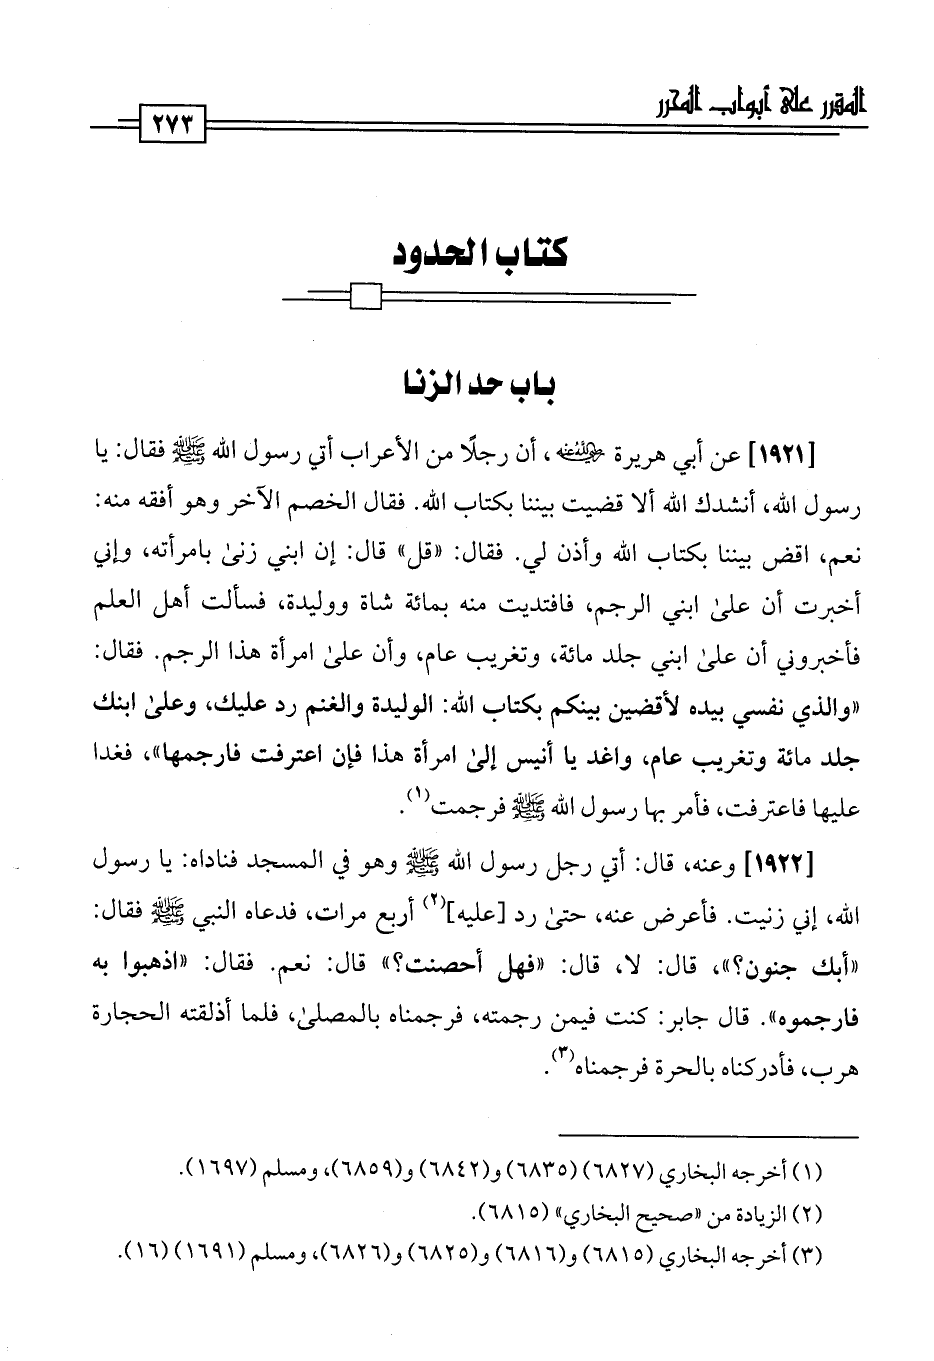 المقرر على أبواب المحرر
٢٧٣
كتاب الحدود
باب حد الزنا
[١٩٢١] عن أبي هريرة رضي الله عنه، أن رجلًا من الأعراب أتي رسول الله ﷺ فقال: يا
رسول الله، أنشدك الله ألا قضيت بيننا بكتاب الله. فقال الخصم الآخر وهو أفقه منه:
نعم، اقض بيننا بكتاب الله وأذن لي. فقال: «قل» قال: إن ابني زنىٰ بامرأته، وإني
أخبرت أن علىٰ ابني الرجم، فافتديت منه بمائة شاة ووليدة، فسألت أهل العلم
فأخبروني أن علىٰ ابني جلد مائة، وتغريب عام، وأن علىٰ امرأة هذا الرجم. فقال:
«والذي نفسي بيده لأقضين بينكم بكتاب الله: الوليدة والغنم رد عليك، وعلىٰ ابنك
جلد مائة وتغريب عام، واغد يا أنيس إلىٰ امرأة هذا فإن اعترفت فارجمها»، فغدا
عليها فاعترفت، فأمر بها رسول الله ﷺ فرجمت(١).
[١٩٢٢] وعنه، قال: أتي رجل رسول الله ﷺ وهو في المسجد فناداه: يا رسول
الله، إني زنيت. فأعرض عنه، حتىٰ رد [عليه](٢) أربع مرات، فدعاه النبي ﷺ فقال:
«أبك جنون؟»، قال: لا، قال: «فهل أحصنت؟» قال: نعم. فقال: «اذهبوا به
فارجموه». قال جابر: كنت فيمن رجمته، فرجمناه بالمصلىٰ، فلما أذلقته الحجارة
هرب، فأدركناه بالحرة فرجمناه(٣).
(١) أخرجه البخاري (٦٨٢٧) (٦٨٣٥) و(٦٨٤٢) و(٦٨٥٩)، ومسلم (١٦٩٧).
(٢) الزيادة من «صحيح البخاري» (٦٨١٥).
(٣) أخرجه البخاري (٦٨١٥) و(٦٨١٦) و(٦٨٢٥) و(٦٨٢٦)، ومسلم (١٦٩١) (١٦).